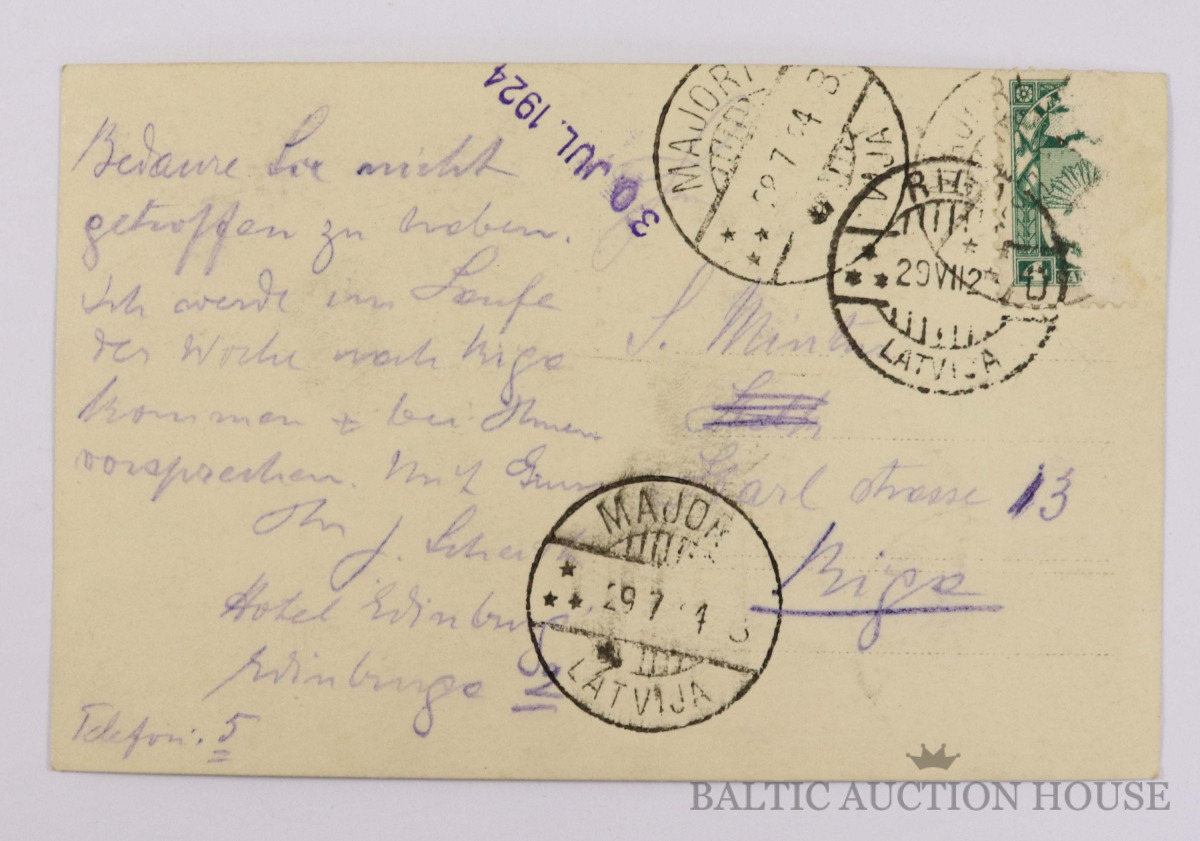 Bedaure Sie nicht
getroffen zu haben.
Ich werde im Laufe
der Woche nach Riga
kommen + bei Ihnen
vorsprechen. Mit Gruss
Ihr J.
Hotel Edinburg
Edinburga IV
Telefon. 5
30 JUL. 1924
MAJORI
29 7 24 3
LATVIJA
RIGA
29 VII 2
LATVIJA
4
S.
Karl strasse 13
Riga
MAJORI
29 7 24 3
LATVIJA
BALTIC AUCTION HOUSE